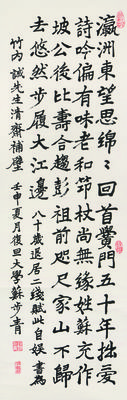 瀛洲東望思綿々回首黌門五十年拙愛
詩吟偏有味老和笻杖尚無緣姓蘇充作
坡公後比壽合趨彭祖前咫尺家山不歸
去悠然步履大江邊 八十歲退居二綫賦此自娛 書為
竹內誠先生清齋補壁 壬申夏月復旦大學蘇步青